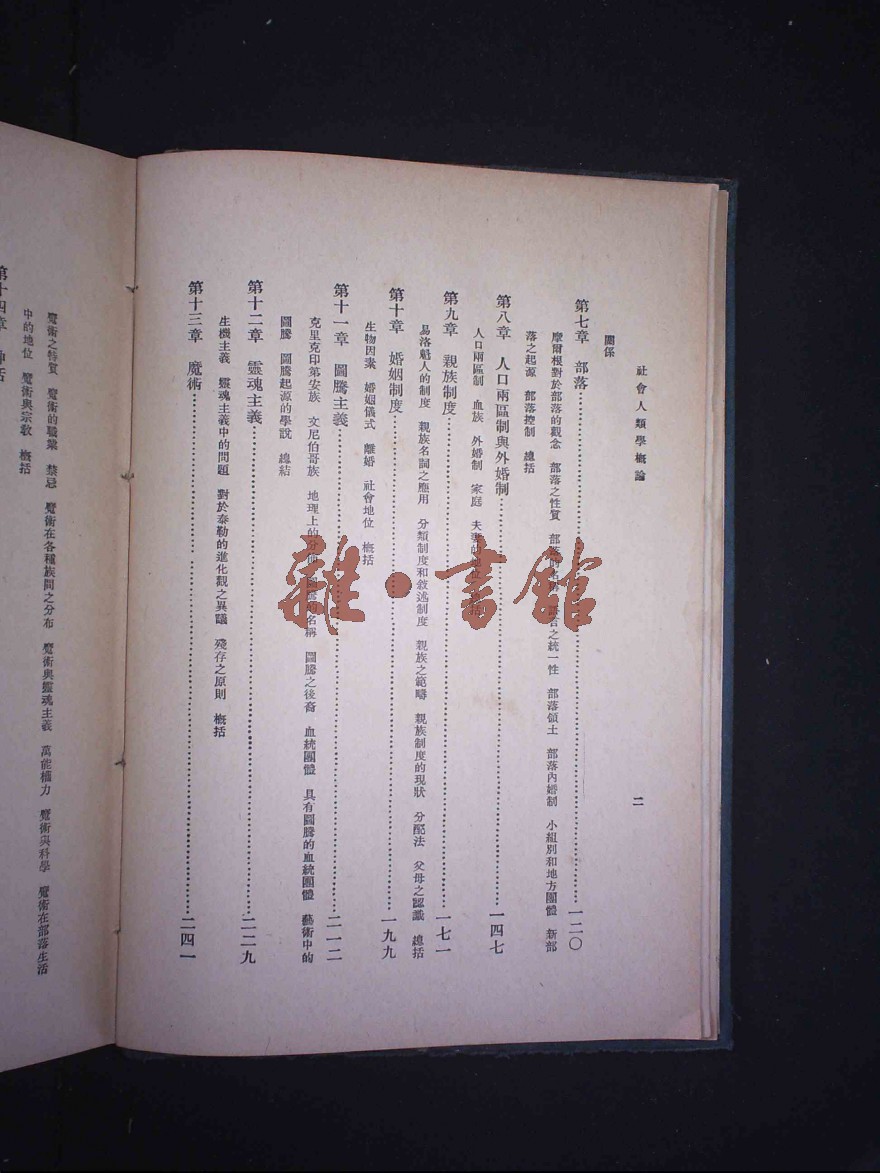 社會人類學槪論
二
關係
第七章 部落……一二〇
摩爾根對於部落的觀念 部落之性質 部落的名稱 語言之統一性 部落領土 部落內婚制 小組別和地方團體 新部
落之起源 部落控制 總括
第八章 人口兩區制與外婚制……一四七
人口兩區制 血族 外婚制 家庭 夫妻的
第九章 親族制度……一七一
易洛魁人的制度 親族名詞之應用 分類制度和敘述制度 親族之範疇 親族制度的現狀 分配法 父母之認識 總括
第十章 婚姻制度……一九九
生物因素 婚姻儀式 離婚 社會地位 槪括
第十一章 圖騰主義……二一二
克里克印第安族 文尼伯哥族 地理上的分佈 圖騰的名稱 圖騰之後裔 血統團體 具有圖騰的血統團體 藝術中的
圖騰 圖騰起源的學說 總結
第十二章 靈魂主義……二二九
生機主義 靈魂主義中的問題 對於泰勒的進化觀之異議 殘存之原則 槪括
第十三章 魔術……二四一
魔術之特質 魔術的職業 禁忌 魔術在各種族間之分布 魔術與靈魂主義 萬能權力 魔術與科學 魔術在部落生活
中的地位 魔術與宗敎 槪括
第十四章 神話
雜·書館